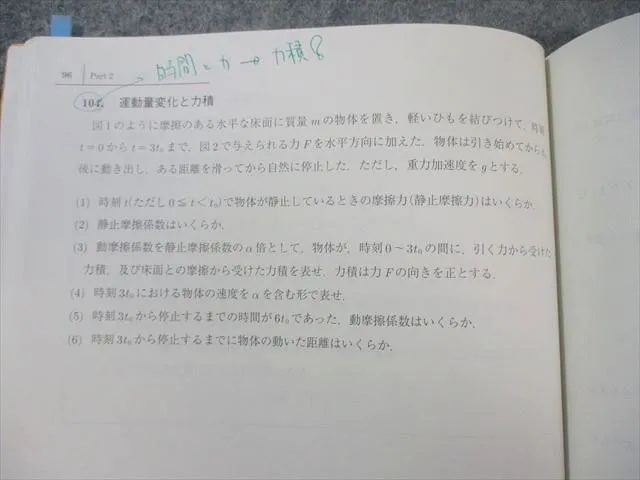 時間と力→力積
96 Part 2
104. 運動量変化と力積
図1のように摩擦のある水平な床面に質量mの物体を置き，軽いひもを結びつけて，時刻
t=0からt=3t₀まで，図2で与えられる力Fを水平方向に加えた．物体は引き始めてから
後に動き出し，ある距離を滑ってから自然に停止した．ただし，重力加速度をgとする．
(1) 時刻t(ただし0≦t<t₀)で物体が静止しているときの摩擦力(静止摩擦力)はいくらか．
(2) 静止摩擦係数はいくらか．
(3) 動摩擦係数を静止摩擦係数のα倍として，物体が，時刻0～3t₀の間に，引く力から受けた
力積，及び床面との摩擦から受けた力積を表せ．力積は力Fの向きを正とする．
(4) 時刻3t₀における物体の速度をαを含む形で表せ．
(5) 時刻3t₀から停止するまでの時間が6t₀であった，動摩擦係数はいくらか．
(6) 時刻3t₀から停止するまでに物体の動いた距離はいくらか．